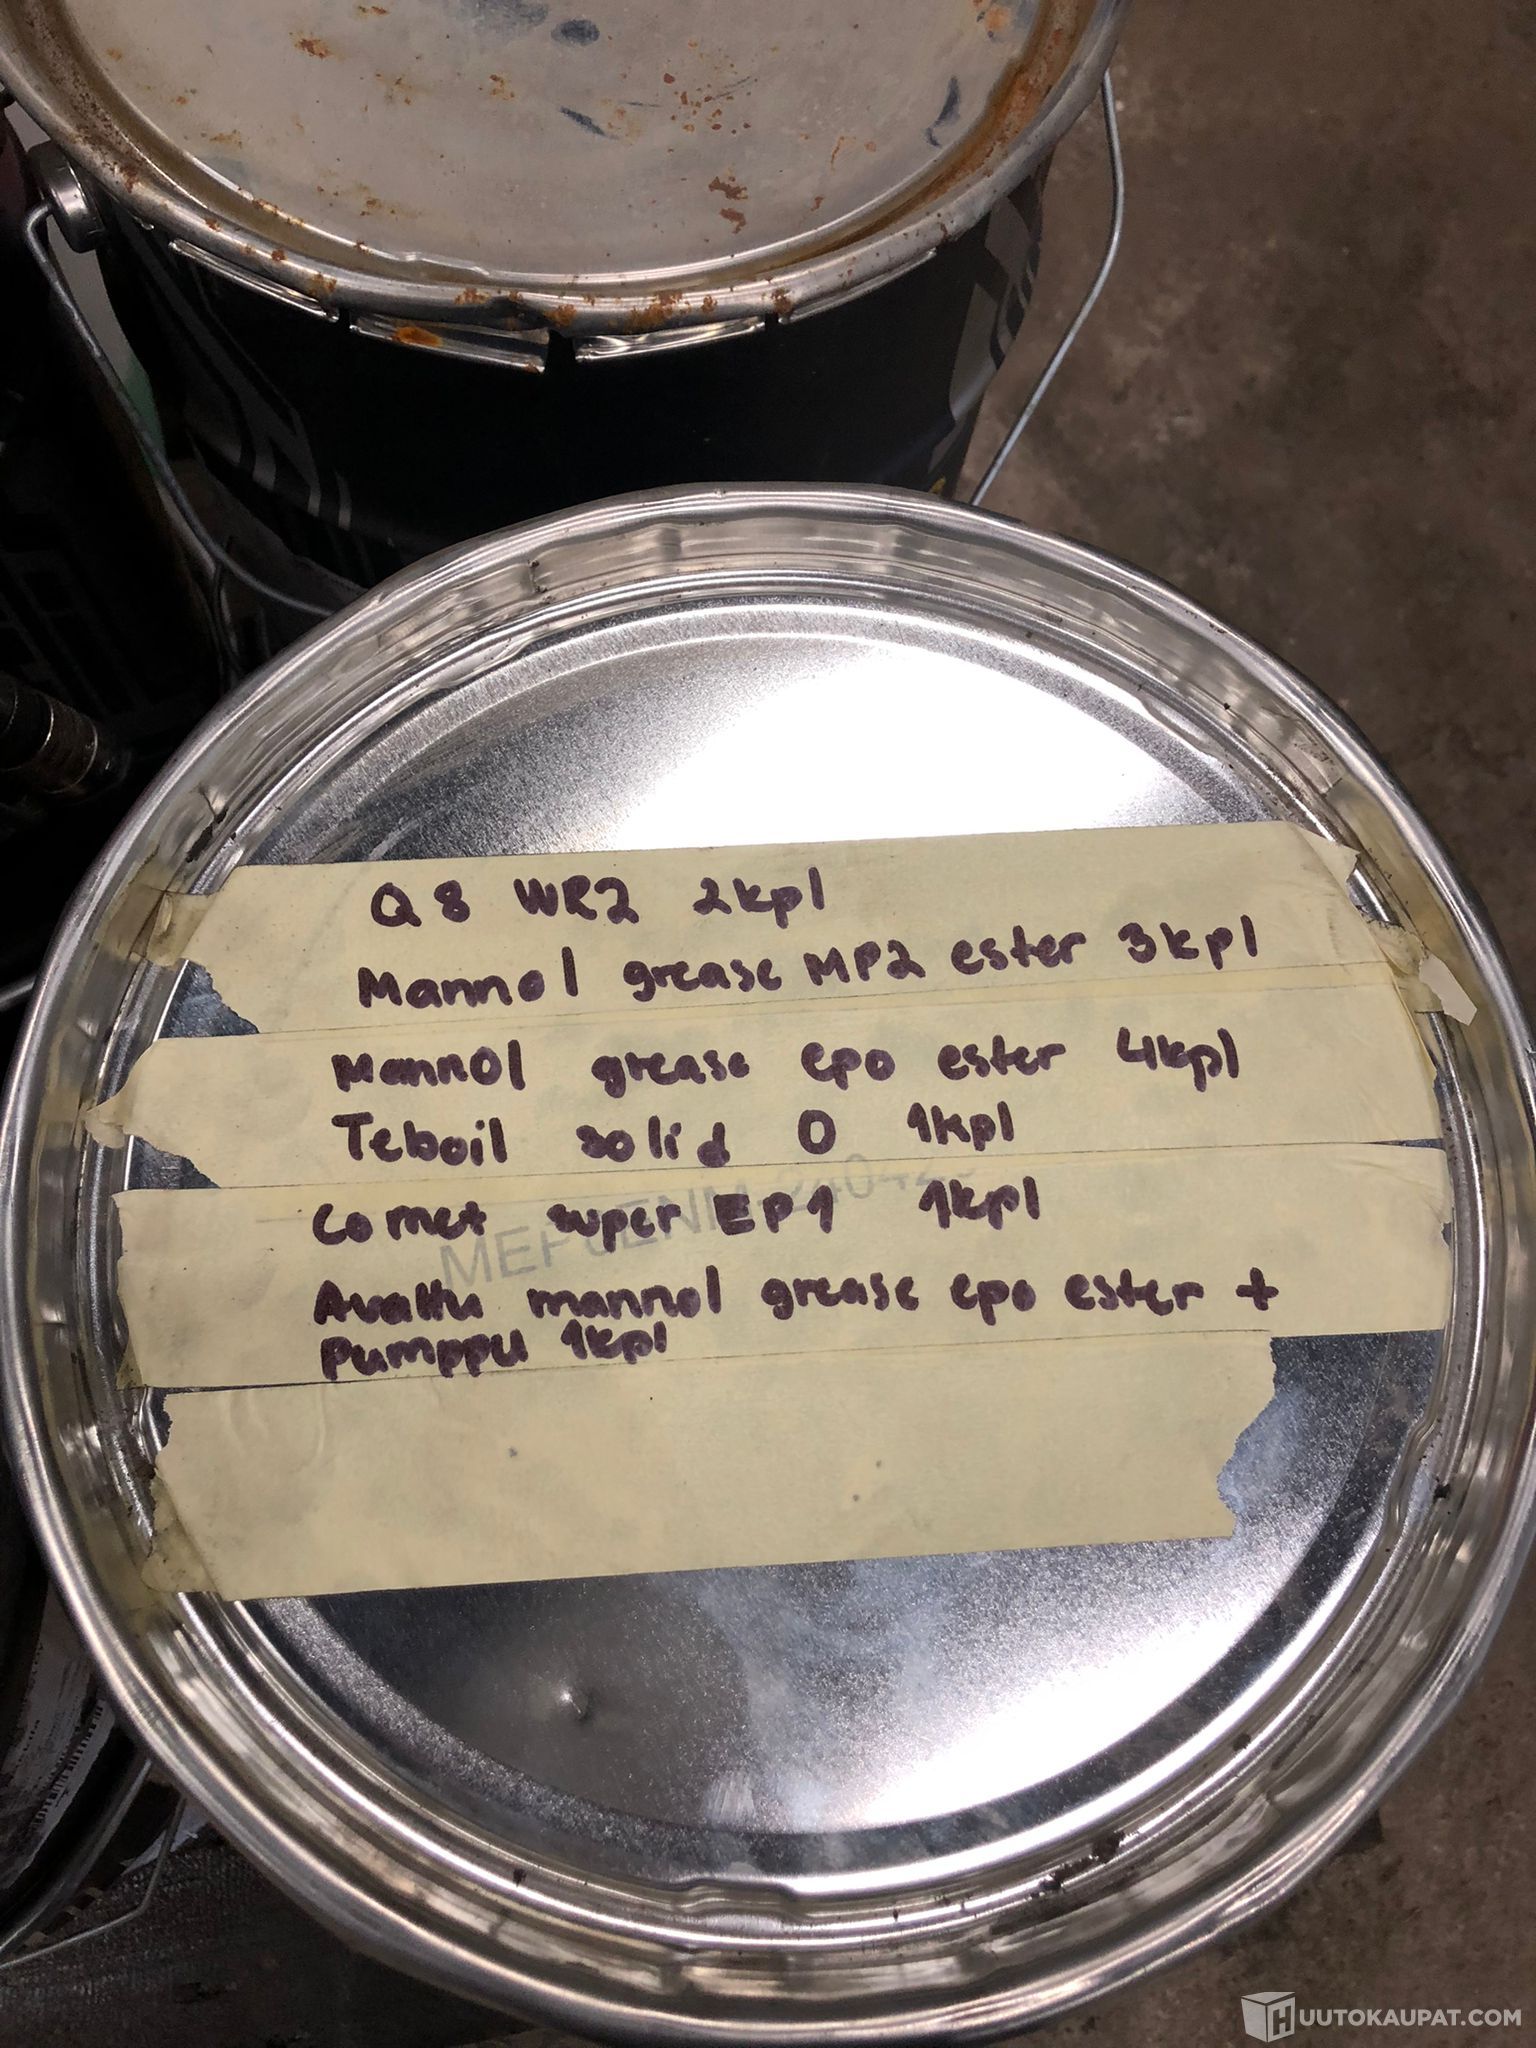 Q8 WR2 2kpl
Mannol grease MP2 ester 3kpl
Mannol grease epo ester 4kpl
Teboil solid 0 1kpl
Comet super EP1 1kpl
Avattu mannol grease epo ester +
Pumppu 1kpl
HUUTOKAUPAT.COM